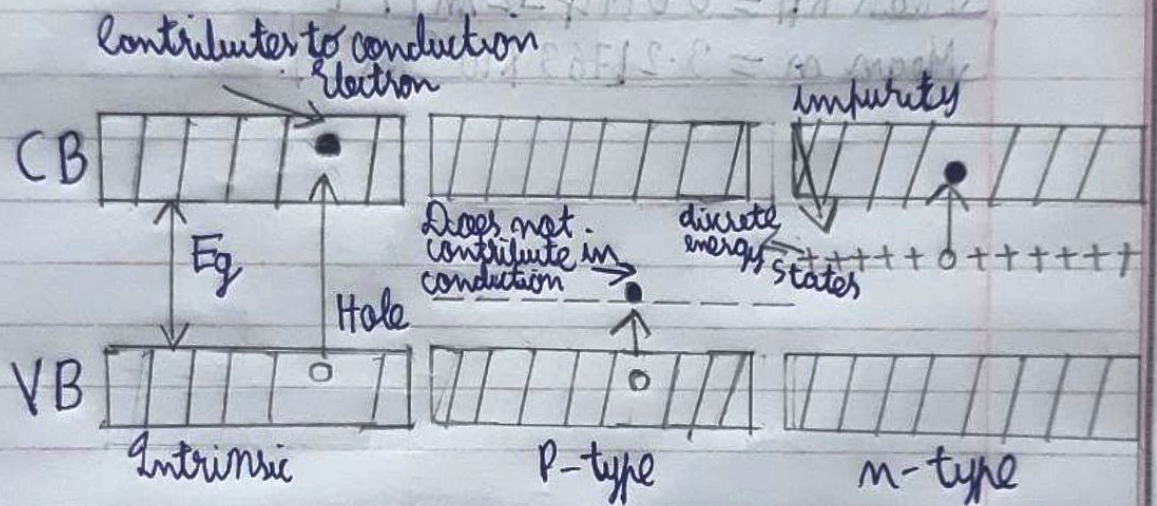 Contributes to conduction
Electron
impurity
CB
Eg
Hole
Does not
contribute in
conduction
discrete
energy
states
+++++ +++++++
VB
Intrinsic
P-type
n-type